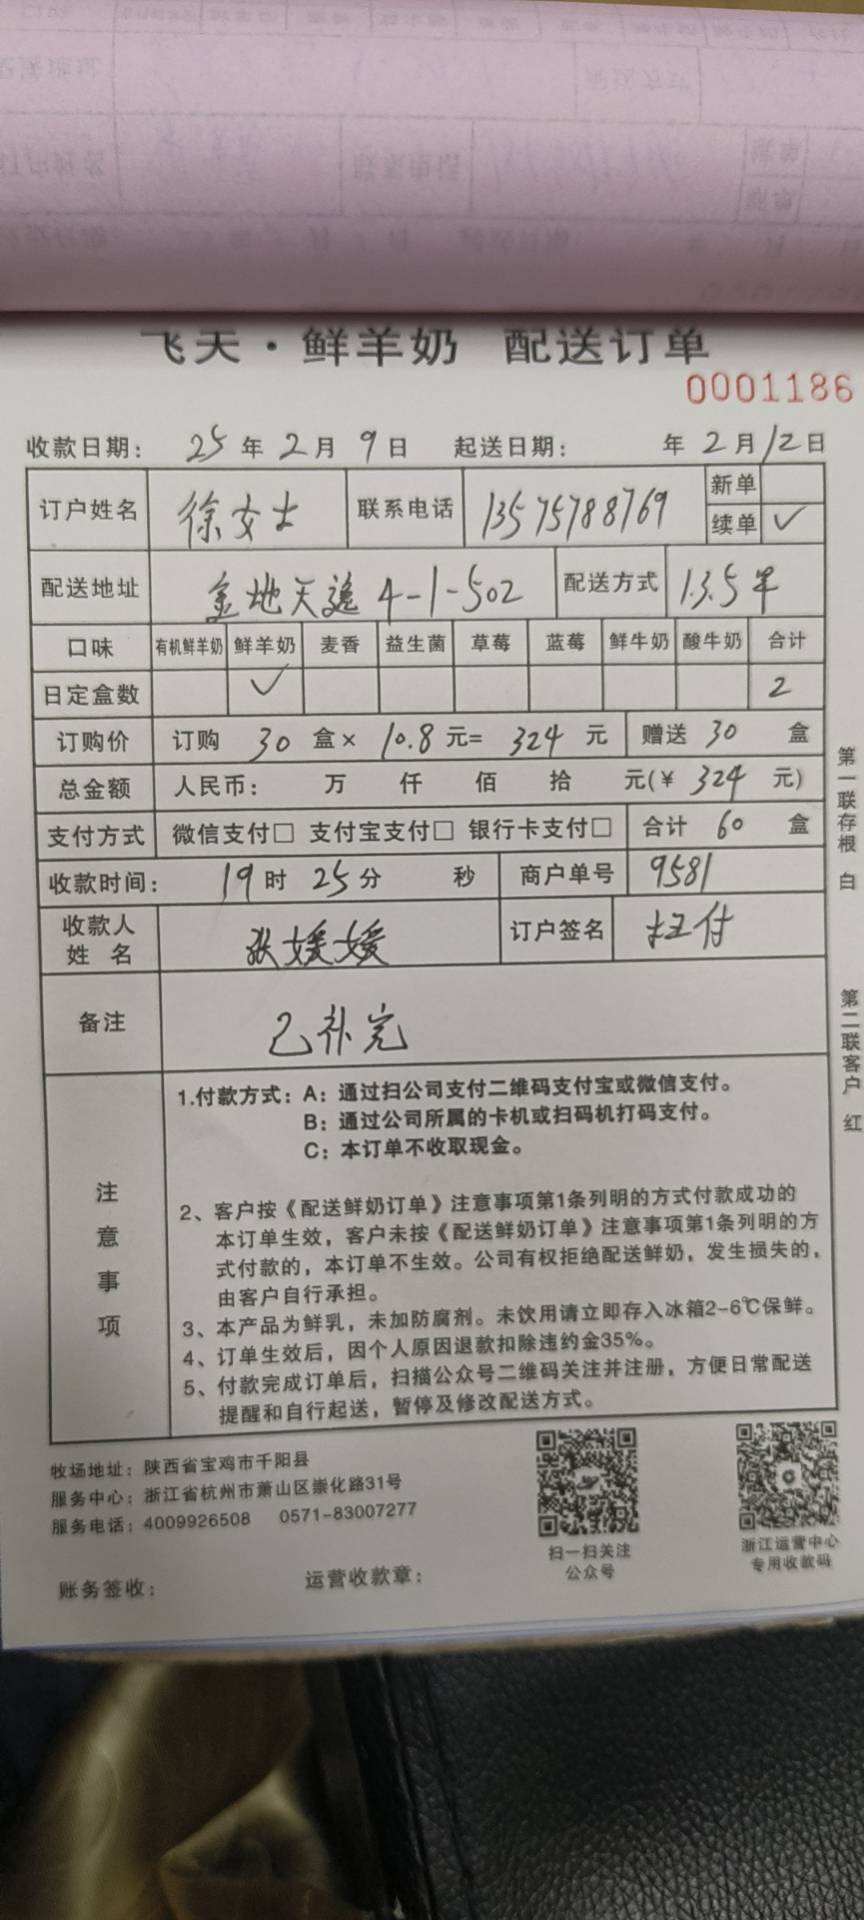 飞天·鲜羊奶 配送订单
0001186
收款日期： 25 年 2 月 9 日 起送日期： 年 2 月 12 日
订户姓名 徐女士 联系电话 13575788769 新单
续单 ✓
配送地址 金地天逸 4-1-502 配送方式 1.3.5早
口味 有机鲜羊奶 鲜羊奶 麦香 益生菌 草莓 蓝莓 鲜牛奶 酸牛奶 合计
日定盒数 ✓ 2
订购价 订购 30 盒× 10.8 元= 324 元 赠送 30 盒
总金额 人民币： 万 仟 佰 拾 元(￥ 324 元)
支付方式 微信支付□ 支付宝支付□ 银行卡支付□ 合计 60 盒
收款时间： 19 时 25 分 秒 商户单号 9581
收款人
姓 名 张媛媛 订户签名 扫付
备注 已补完
注意事项
1.付款方式：A：通过扫公司支付二维码支付宝或微信支付。
B：通过公司所属的卡机或扫码机打码支付。
C：本订单不收取现金。
2、客户按《配送鲜奶订单》注意事项第1条列明的方式付款成功的
本订单生效，客户未按《配送鲜奶订单》注意事项第1条列明的方
式付款的，本订单不生效。公司有权拒绝配送鲜奶，发生损失的，
由客户自行承担。
3、本产品为鲜乳，未加防腐剂。未饮用请立即存入冰箱2-6℃保鲜。
4、订单生效后，因个人原因退款扣除违约金35%。
5、付款完成订单后，扫描公众号二维码关注并注册，方便日常配送
提醒和自行起送，暂停及修改配送方式。
第一联存根 白
第二联客户 红
牧场地址：陕西省宝鸡市千阳县
服务中心：浙江省杭州市萧山区崇化路31号
服务电话：4009926508 0571-83007277
扫一扫关注
公众号
浙江运营中心
专用收款码
账务签收： 运营收款章：